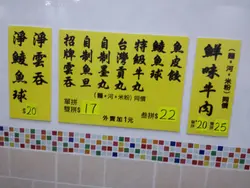 淨雲吞
淨鯪魚球
$20
魚皮餃
鯪魚球
特級牛丸
台灣貢丸
自制墨丸
自制魚旦
招牌雲吞
(麵+河+米粉)同價
單拼
雙拼
$17
叁拼
$22
外賣加1元
(麵+河+米粉)同價
鮮味牛肉
$20
$25